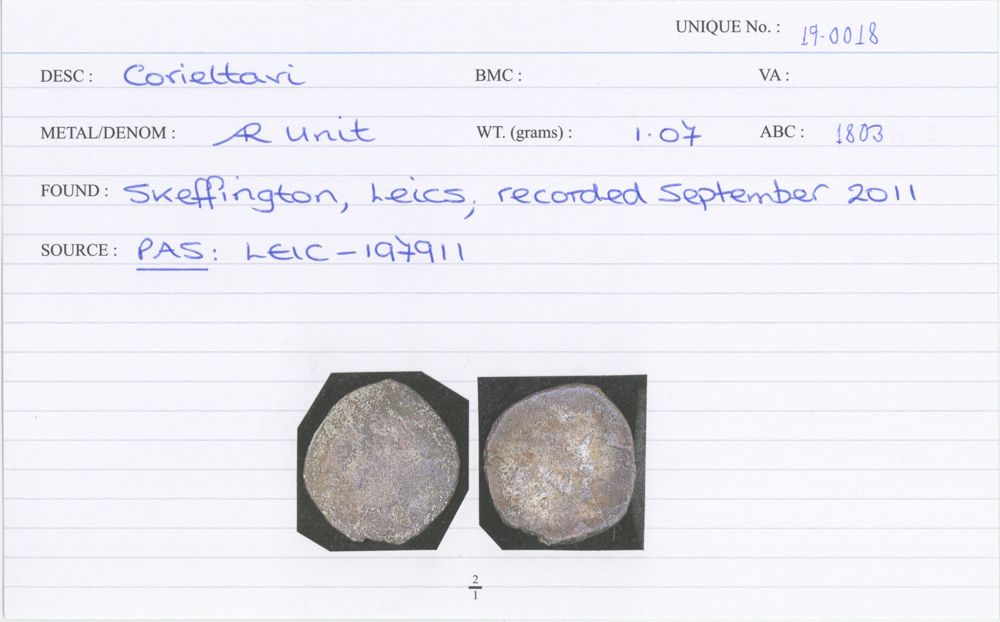 UNIQUE No. : 19-0018
DESC : Corieltavi BMC : VA :
METAL/DENOM : AR Unit WT. (grams) : 1.07 ABC : 1803
FOUND : Skeffington, Leics, recorded September 2011
SOURCE : PAS: LEIC-197911
2
1